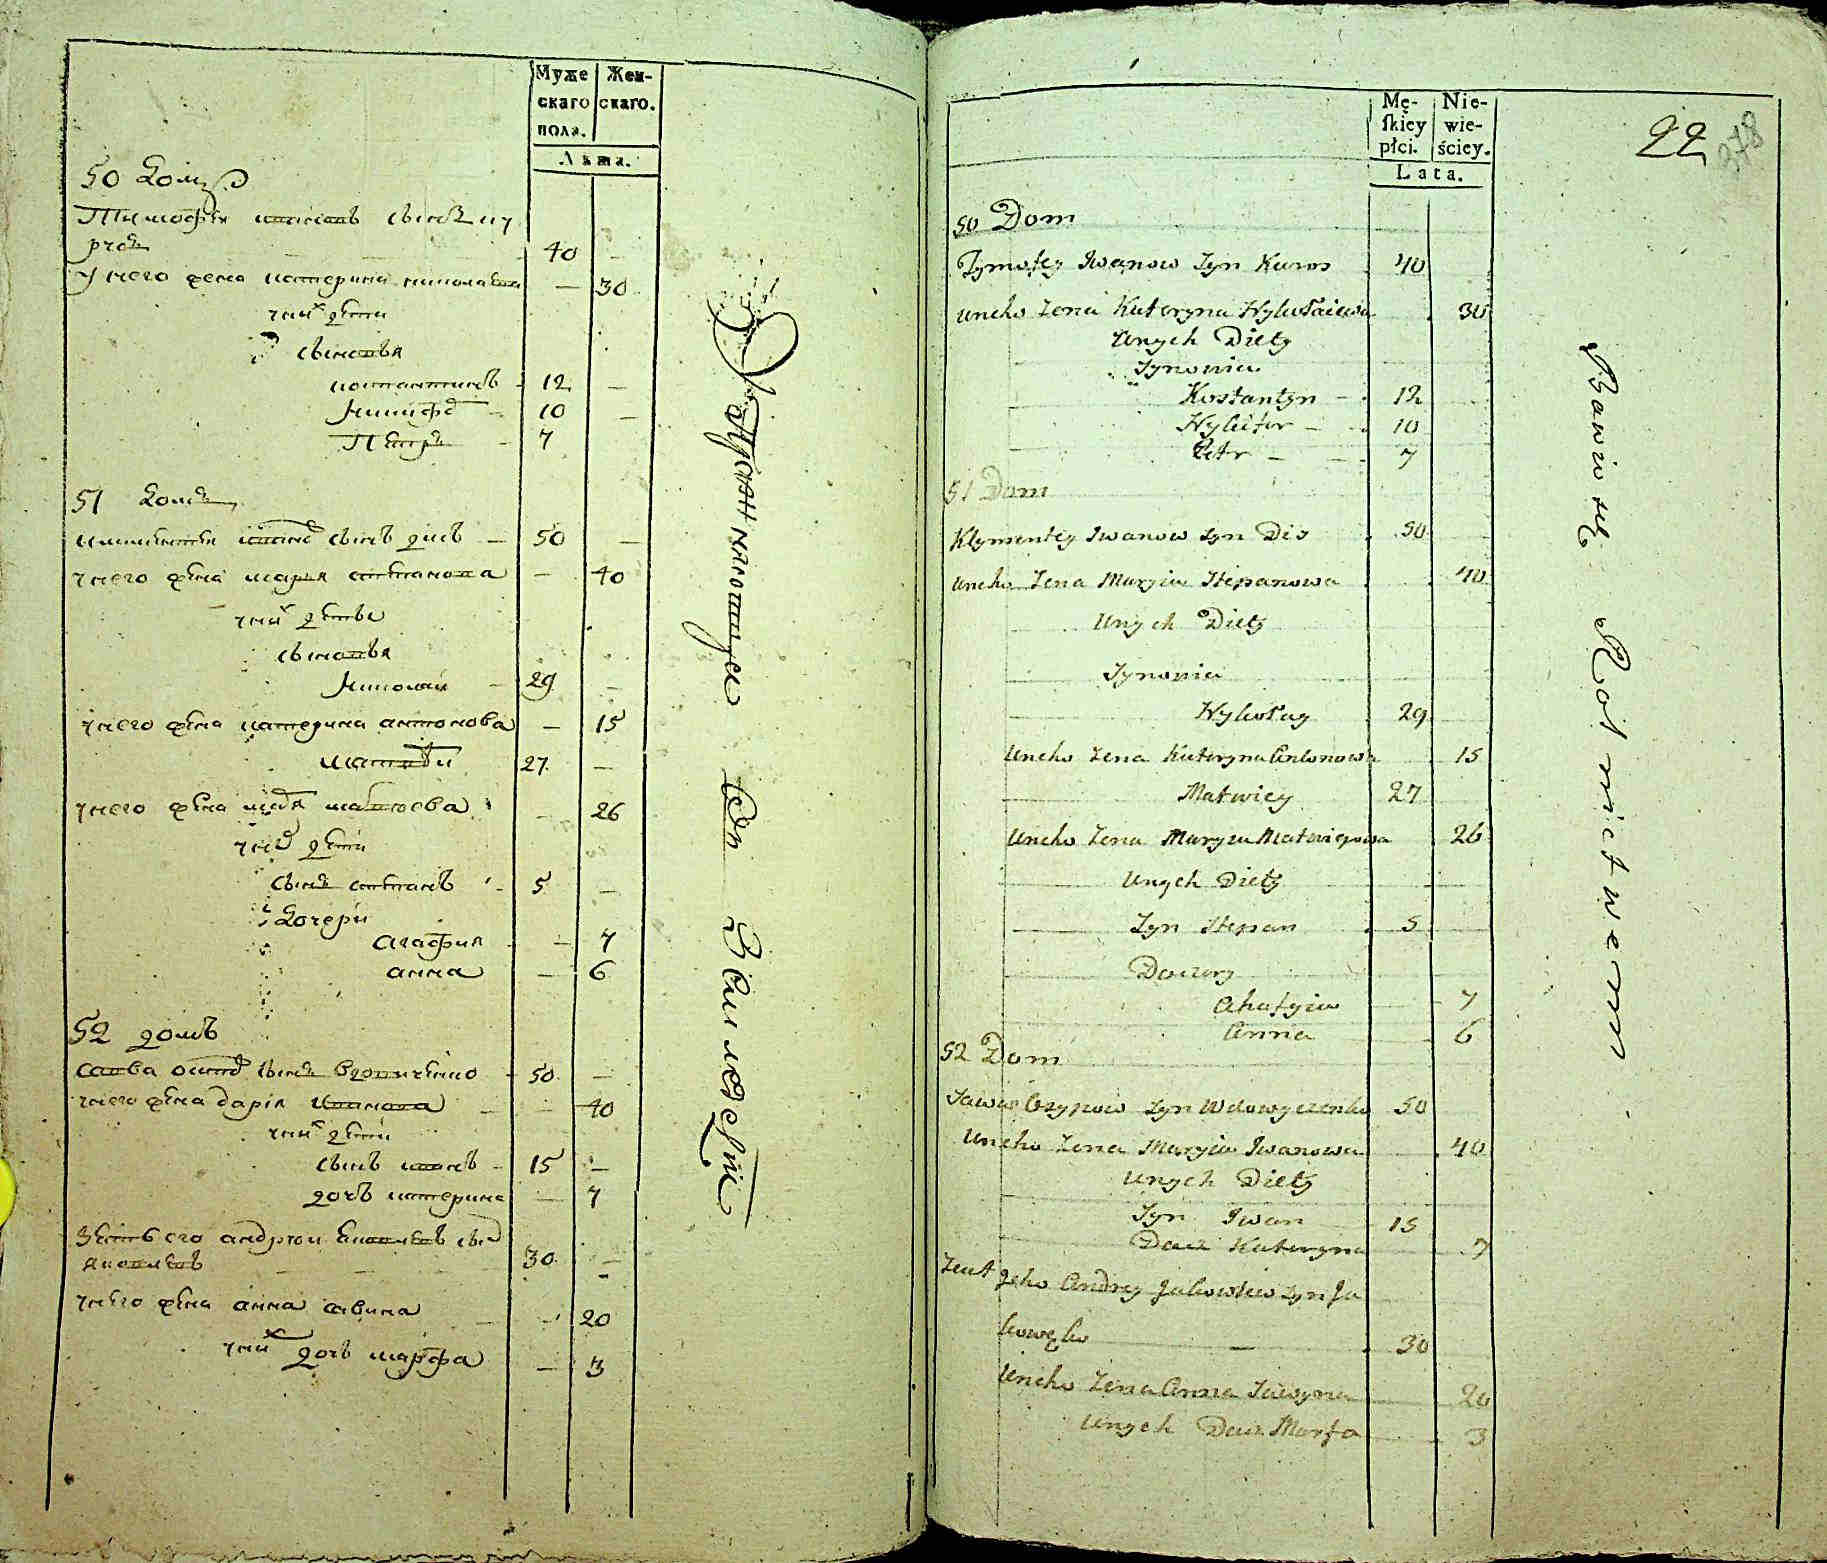 Муже
скаго
пола.
Жен-
скаго.
Лѣта.
50 Домъ
Тимофѣй ивановъ сынъ ку
росъ 40
у него жена катерина николаева 30
у них дѣти
сыновья
костантинъ 12
Никифоръ 10
Петръ 7
51 домъ
климентій ивановъ сынъ дисъ 50
у него жена марья степанова 40
у них дѣти
сыновья
Николай 29
у него жена катерина антонова 15
матвѣй 27
у него жена марья матвѣева 26
у них дѣти
сынъ степанъ 5
дочери
агафия 7
анна 6
52 домъ
савва осиповъ сынъ вдовиченко 50
у него жена дарія иванова 40
у них дѣти
сынъ иванъ 15
дочь катерина 7
зять его андрей яковлевъ сынъ
30
у него жена анна савина 20
у них дочь марфа 3
Землѣдѣлѣ
Mę-
skiey
płci.
Nie-
wie-
ściey.
Lata.
22
378
50 Dom
Tymofey Iwanow Syn Kuros 40
uneho Zena Kateryna Nykołaiewa 30
Unych Diety
Synowia
Kostantyn 12
Nykifor 10
Petr 7
51 Dom
Klymentey Iwanow Syn Dis 50
Uneho Zena Maryia Stepanowa 40
Unych Diety
Synowia
Nykołay 29
Uneho Zena Kateryna Antonowa 15
Matwiey 27
Uneho Zena Maryia Matwieiowa 26
Unych Diety
Syn Stepan 5
Doczery
Ahafyia 7
Anna 6
52 Dom
Sawa Osypow Syn Wdowyczenko 50
Uneho Zena Maryia Iwanowa 40
Unych Diety
Syn Iwan 15
Docz Kateryna 7
Zeat Jeho Andrey Jakowlew Syn Ja
30
Uneho Zena Anna Sawyna 20
Unych Docz Marfa 3
Bawią się Rolnictwem